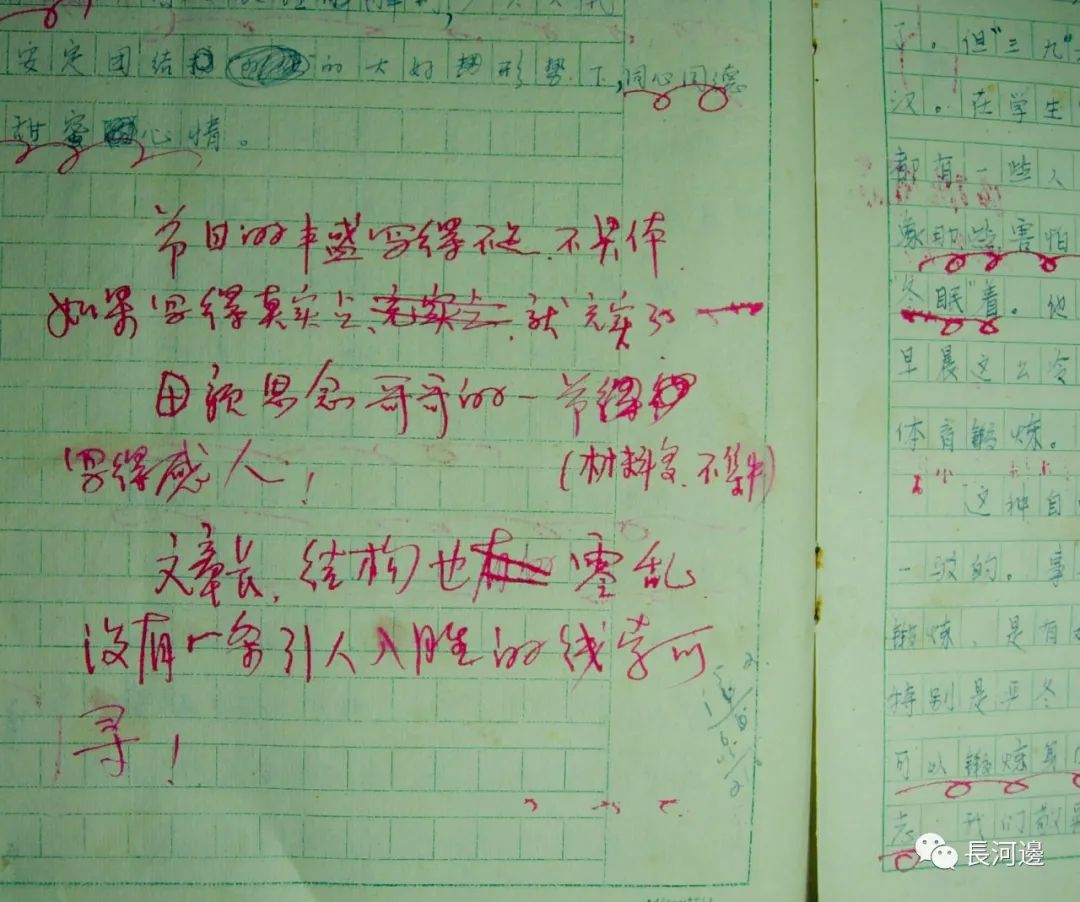 安定团结的大好形势下,同心同德
甜蜜心情。
节日的丰盛写得不足、不具体
如果写得真实些、就充实了
回顾思念哥哥的一节
写得感人!
(材料多、不集中)
文章长,结构也零乱
没有一条引人入胜的线索可
寻!
了。但"三九"
汉。在学生
都有一些人
害怕
"冬眠"着。他
早晨这么冷
体育锻炼。
这种自
一致的。事
锻炼,是有
特别是严冬
可以锻炼
志。我们
長河邊